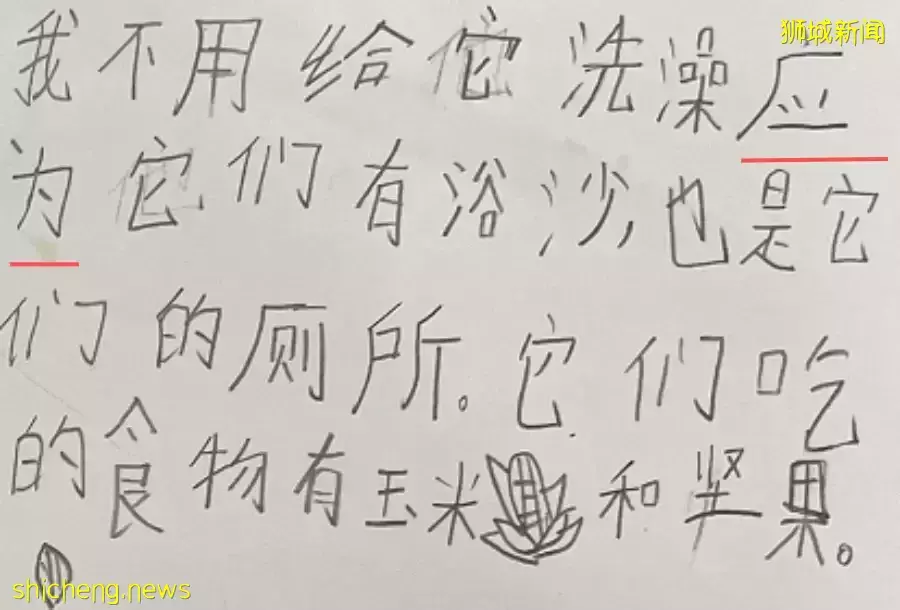 狮城新闻
我不用给它洗澡应
为它们有浴沙,也是它
们的厕所。它们吃
的食物有玉米和坚果。
shicheng.news